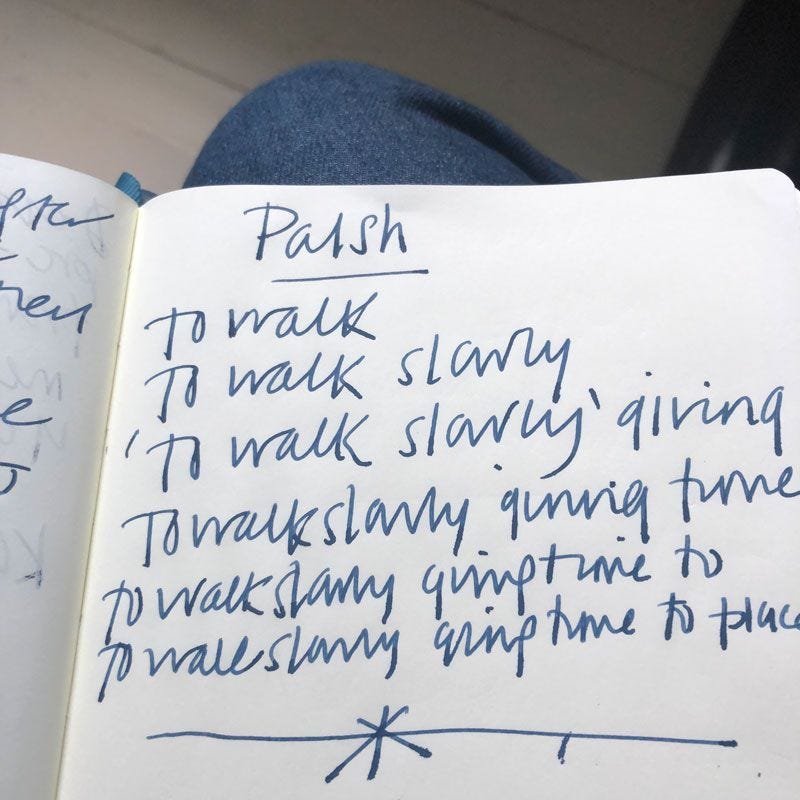 Palsh
To walk
To walk slowly
'To walk slowly' giving
To walk slowly giving time
to walk slowly giving time to
To walk slowly giving time to place